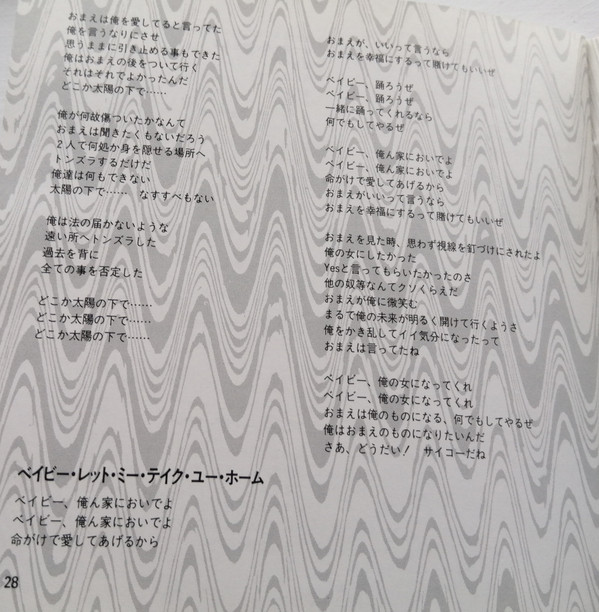 おまえは俺を愛してると言ってた
俺を言うなりにさせ
思うままに引き止める事もできた
俺はおまえの後をついて行く
それはそれでよかったんだ
どこか太陽の下で……
俺が何故傷ついたかなんて
おまえは聞きたくもないだろう
2人で何処か身を隠せる場所へ
トンズラするだけだ
俺達は何もできない
太陽の下で…… なすすべもない
俺は法の届かないような
遠い所へトンズラした
過去を背に
全ての事を否定した
どこか太陽の下で……
どこか太陽の下で……
どこか太陽の下で……
ベイビー・レット・ミー・テイク・ユー・ホーム
ベイビー、俺ん家においでよ
ベイビー、俺ん家においでよ
命がけで愛してあげるから
おまえが、いいって言うなら
おまえを幸福にするって賭けてもいいぜ
ベイビー、踊ろうぜ
ベイビー、踊ろうぜ
一緒に踊ってくれるなら
何でもしてやるぜ
ベイビー、俺ん家においでよ
ベイビー、俺ん家においでよ
命がけで愛してあげるから
おまえがいいって言うなら
おまえを幸福にするって賭けてもいいぜ
おまえを見た時、思わず視線を釘づけにされたよ
俺の女にしたかった
Yesと言ってもらいたかったのさ
他の奴等なんてクソくらえだ
おまえが俺に微笑む
まるで俺の未来が明るく開けて行くようさ
俺をかき乱してイイ気分になったって
おまえは言ってたね
ベイビー、俺の女になってくれ
ベイビー、俺の女になってくれ
おまえは俺のものになる、何でもしてやるぜ
俺はおまえのものになりたいんだ
さあ、どうだい! サイコーだね
28